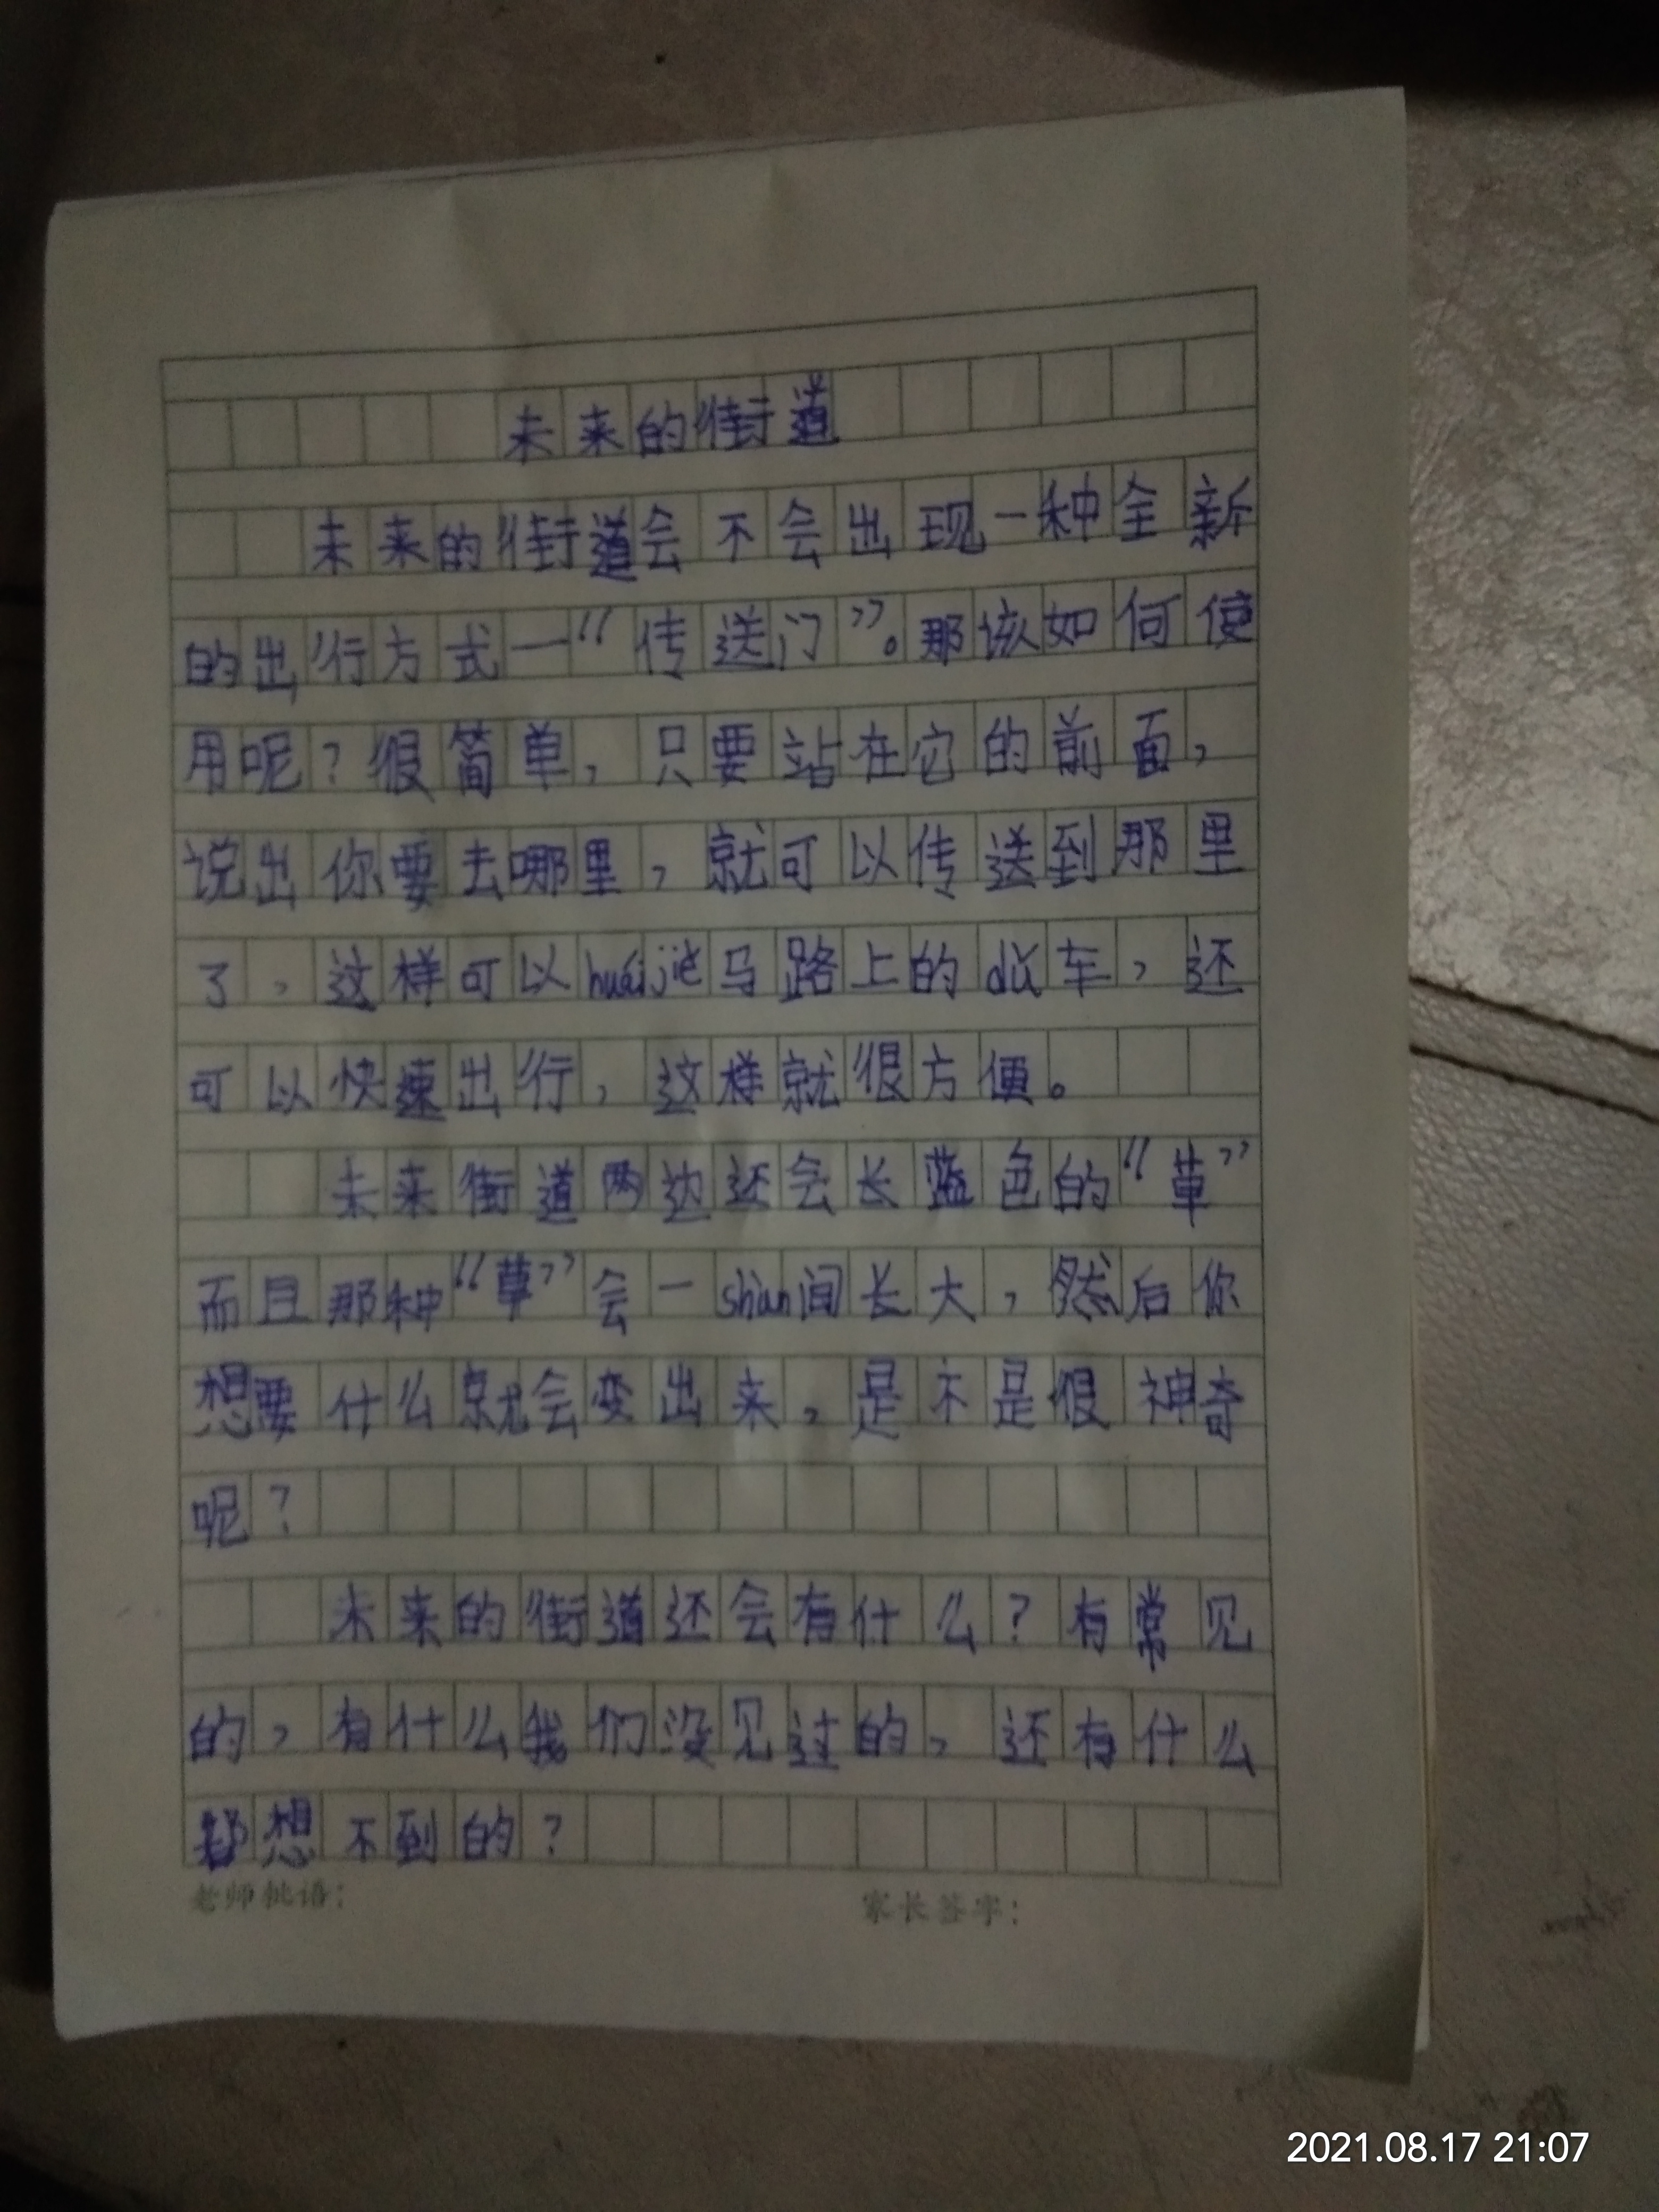 未来的街道
未来的街道会不会出现一种全新
的出行方式—“传送门”。那该如何使
用呢?很简单,只要站在它的前面,
说出你要去哪里,就可以传送到那里
了,这样可以huáijiě马路上的dǔ车,还
可以快速出行,这样就很方便。
未来街道两边还会长蓝色的“草”
而且那种“草”会一shùn间长大,然后你
想要什么就会变出来,是不是很神奇
呢?
未来的街道还会有什么?有常见
的,有什么我们没见过的,还有什么
想不到的?
老师批语: 家长签字:
2021.08.17 21:07